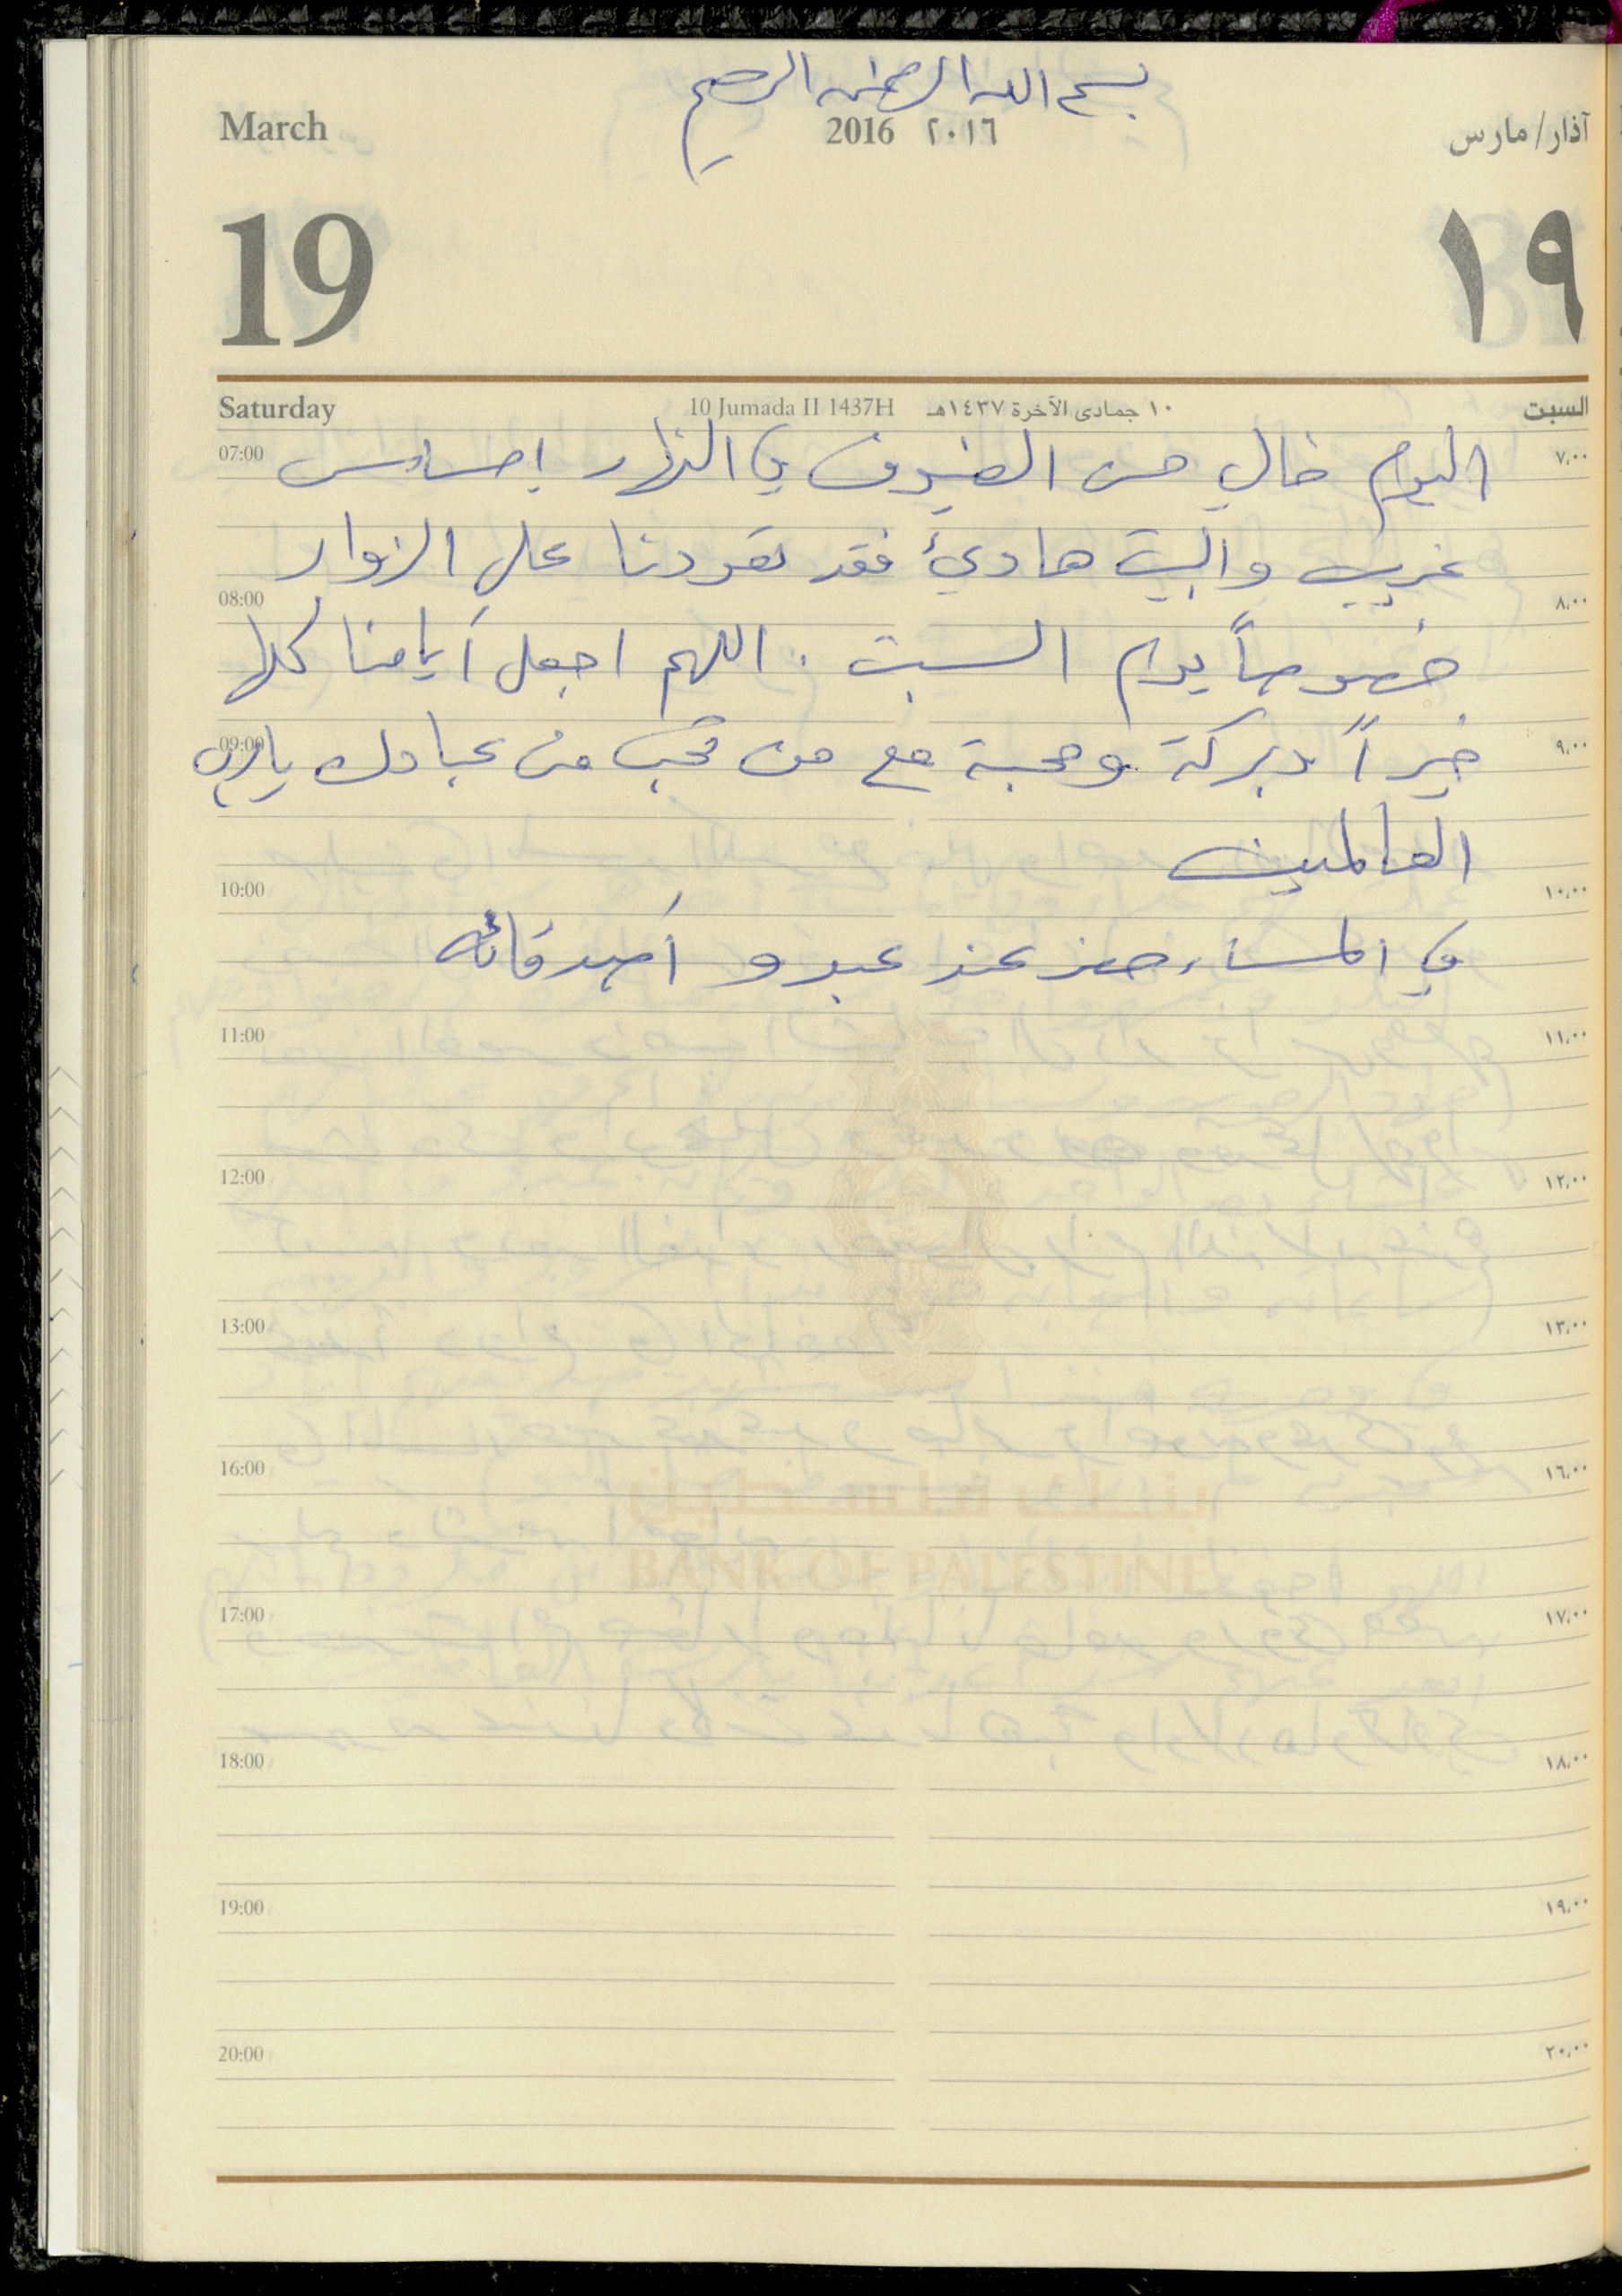 بسم الله الرحمن الرحيم
March 2016 ٢٠١٦ آذار/مارس
19 ١٩
Saturday 10 Jumada II 1437H ١٠ جمادى الآخرة ١٤٣٧هـ السبت
07:00 اليوم خالي من الضيوف في النهار إحساس ٧،٠٠
غريب والبيت هادئ فقد تعودنا على الزوار
08:00 ٨،٠٠
خصوصاً يوم السبت . اللهم اجعل أيامنا كلها
09:00 خيراً وبركة ومحبة مع من تحب من عبادك يا رب ٩،٠٠
العالمين
10:00 ١٠،٠٠
في المساء حضر عند عبد و أصدقائه
11:00 ١١،٠٠
12:00 ١٢،٠٠
13:00 ١٣،٠٠
16:00 ١٦،٠٠
بنك فلسطين
BANK OF PALESTINE
17:00 ١٧،٠٠
18:00 ١٨،٠٠
19:00 ١٩،٠٠
20:00 ٢٠،٠٠